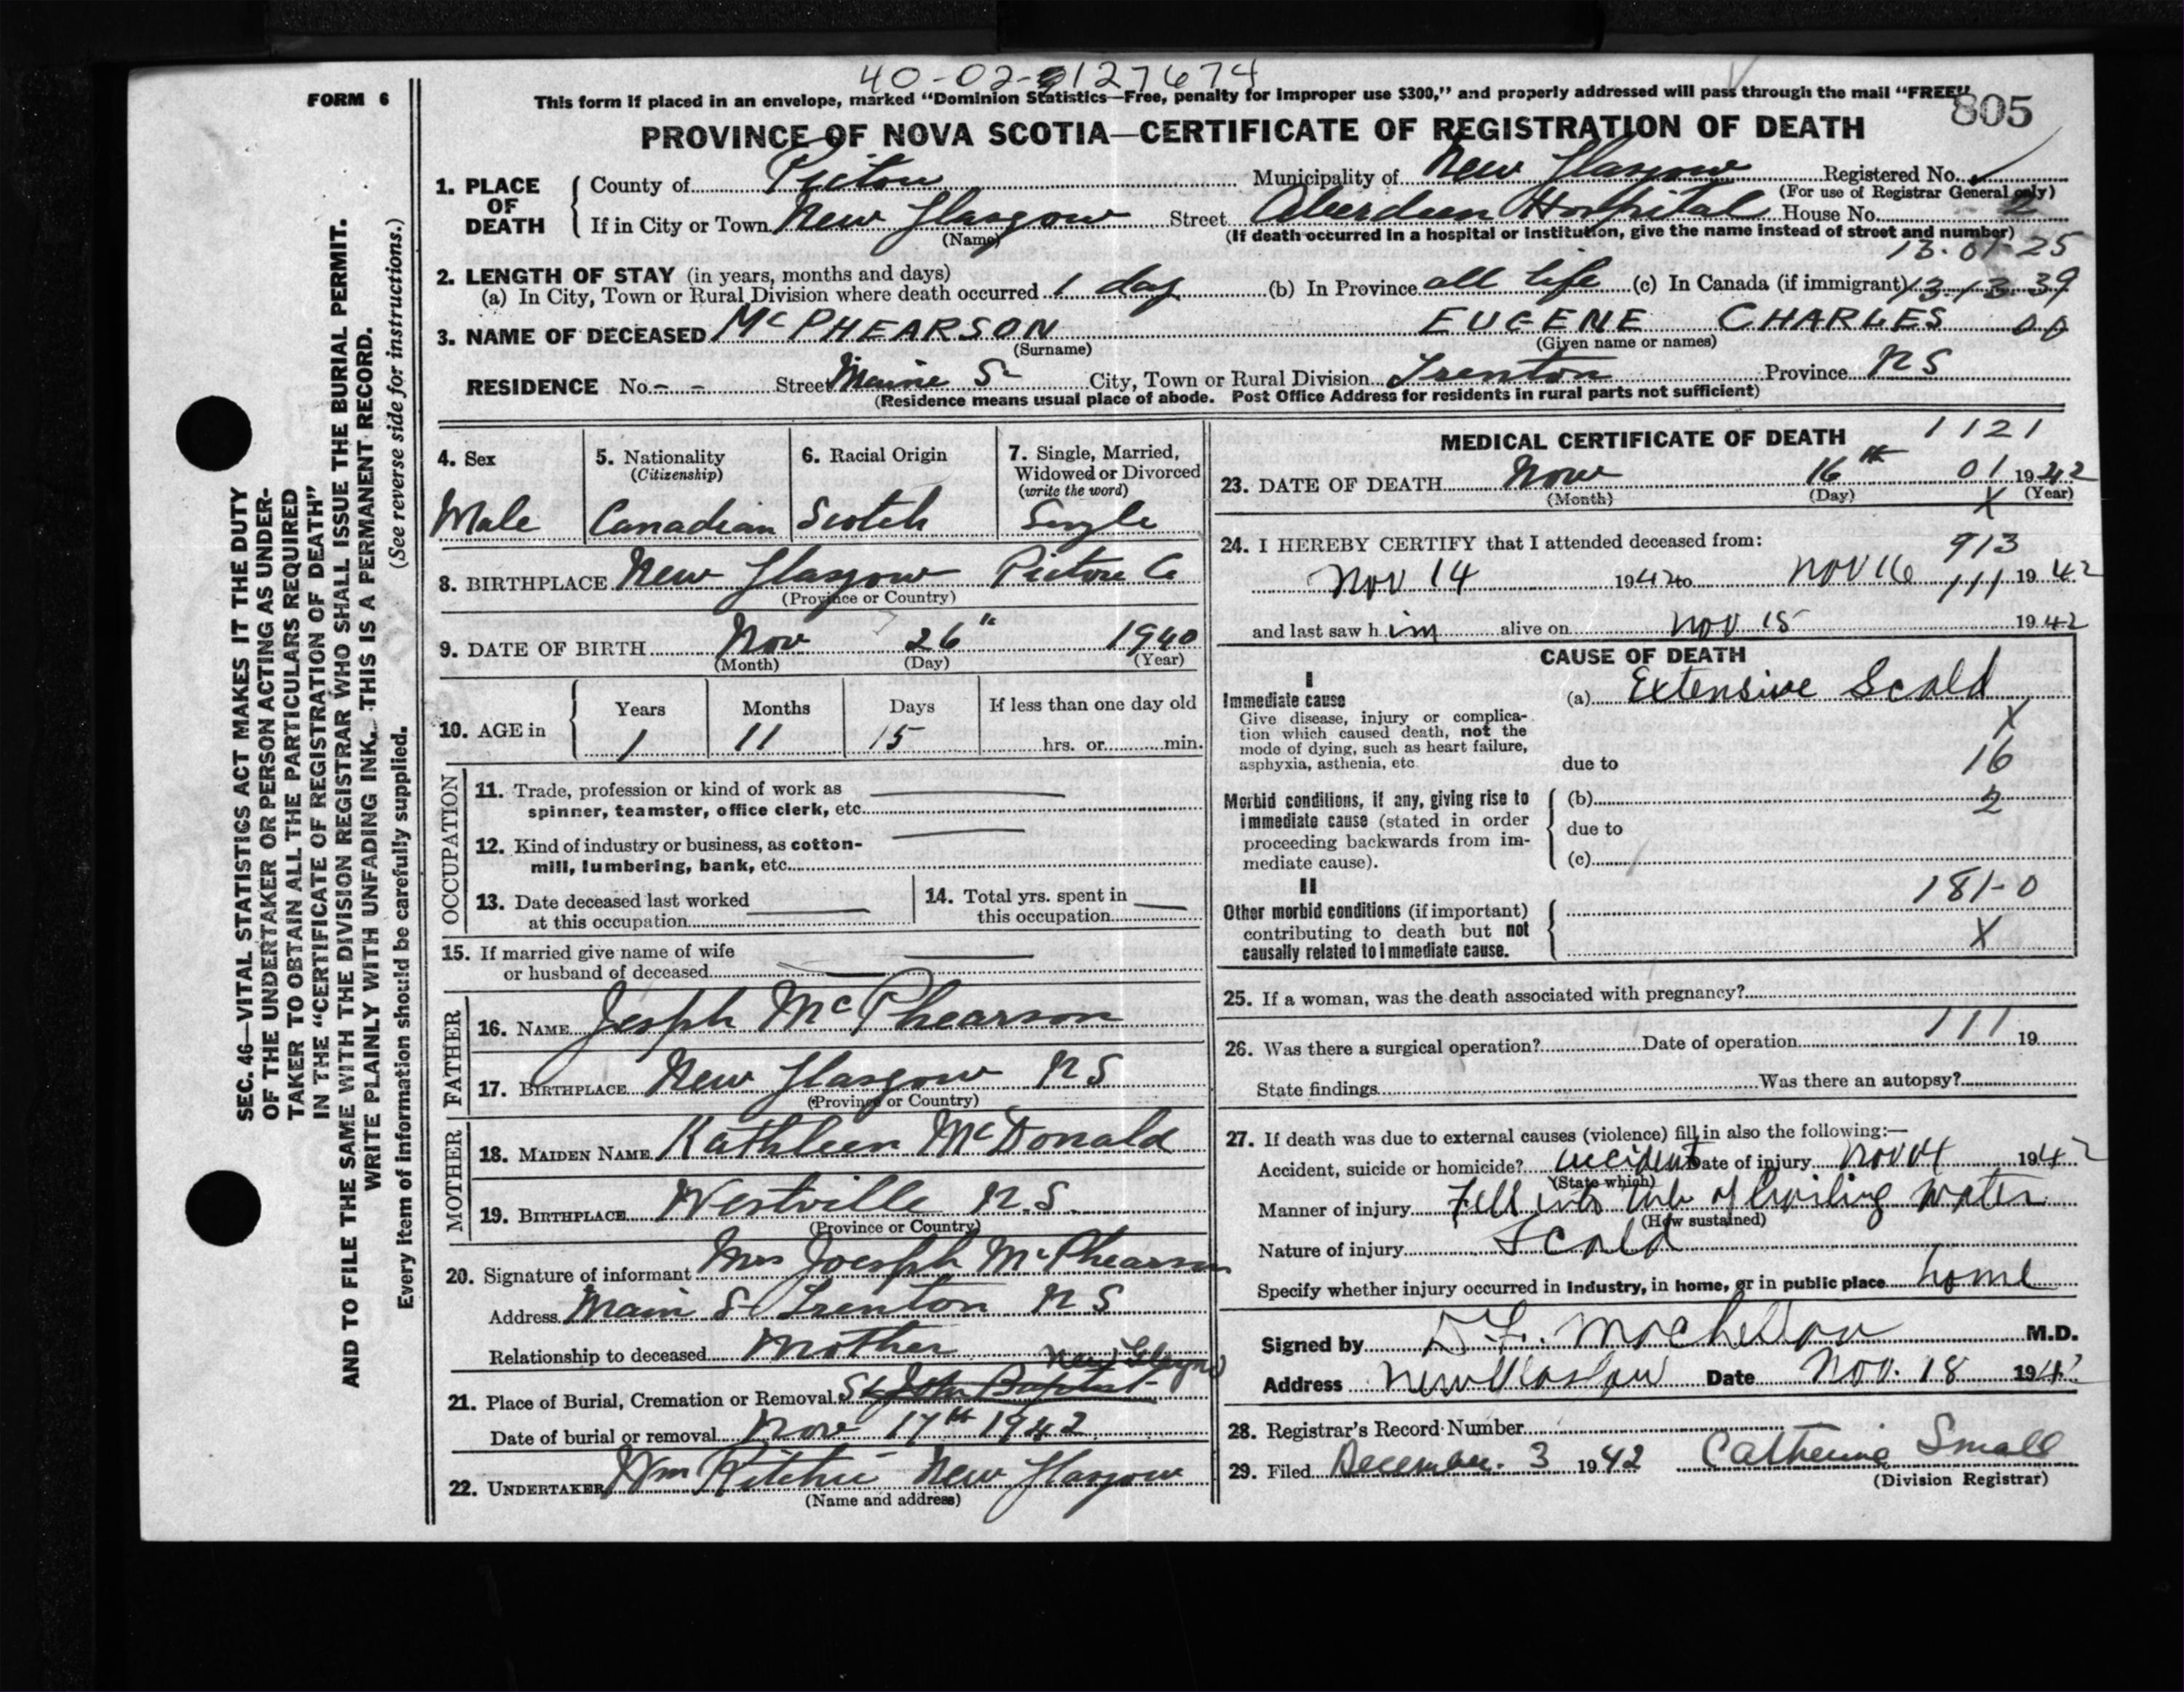 40-02-0127674
FORM 6
This form if placed in an envelope, marked “Dominion Statistics—Free, penalty for improper use $300,” and properly addressed will pass through the mail “FREE”
805
PROVINCE OF NOVA SCOTIA—CERTIFICATE OF REGISTRATION OF DEATH
1. PLACE OF DEATH
County of Pictou Municipality of New Glasgow Registered No.
(For use of Registrar General only)
If in City or Town New Glasgow Street Aberdeen Hospital House No. 2
(Name) (If death occurred in a hospital or institution, give the name instead of street and number)
13-01-25
2. LENGTH OF STAY (in years, months and days)
(a) In City, Town or Rural Division where death occurred 1 day (b) In Province all life (c) In Canada (if immigrant) 13-13-39
3. NAME OF DECEASED McPHEARSON EUGENE CHARLES 00
(Surname) (Given name or names)
RESIDENCE No. - - Street Maine St City, Town or Rural Division Trenton Province NS
(Residence means usual place of abode. Post Office Address for residents in rural parts not sufficient)
4. Sex
Male
5. Nationality
(Citizenship)
Canadian
6. Racial Origin
Scotch
7. Single, Married,
Widowed or Divorced
(write the word)
Single
8. BIRTHPLACE New Glasgow Pictou Co
(Province or Country)
9. DATE OF BIRTH Nov 26" 1940
(Month) (Day) (Year)
10. AGE in
Years Months Days If less than one day old
1 11 15 hrs. or min.
OCCUPATION
11. Trade, profession or kind of work as
spinner, teamster, office clerk, etc.
12. Kind of industry or business, as cotton-
mill, lumbering, bank, etc.
13. Date deceased last worked
at this occupation
14. Total yrs. spent in
this occupation
15. If married give name of wife
or husband of deceased
FATHER
16. NAME Jesph McPhearson
17. BIRTHPLACE New Glasgow NS
(Province or Country)
MOTHER
18. MAIDEN NAME Kathleen McDonald
19. BIRTHPLACE Westville N.S.
(Province or Country)
20. Signature of informant Mrs Joesph McPhearson
Address Main St Trenton NS
Relationship to deceased Mother
New Glasgow
21. Place of Burial, Cremation or Removal St John Baptist
Date of burial or removal Nov 17th 1942
22. UNDERTAKER Wm Ritchie New Glasgow
(Name and address)
MEDICAL CERTIFICATE OF DEATH 1121
23. DATE OF DEATH Nov 16th 01 1942
(Month) (Day) X (Year)
24. I HEREBY CERTIFY that I attended deceased from: 913
Nov 14 1942 to Nov 16 111 1942
and last saw him alive on Nov 15 1942
CAUSE OF DEATH
I
Immediate cause
Give disease, injury or complica-
tion which caused death, not the
mode of dying, such as heart failure,
asphyxia, asthenia, etc.
(a) Extensive Scald
X
due to 16
Morbid conditions, if any, giving rise to
immediate cause (stated in order
proceeding backwards from im-
mediate cause).
(b) 2
due to
(c)
II
Other morbid conditions (if important)
contributing to death but not
causally related to immediate cause.
181-0
X
25. If a woman, was the death associated with pregnancy?
26. Was there a surgical operation? Date of operation 111 19
State findings Was there an autopsy?
27. If death was due to external causes (violence) fill in also the following:—
Accident, suicide or homicide? accident Date of injury Nov 14 1942
(State which)
Manner of injury Fell into tub of boiling water
(How sustained)
Nature of injury Scald
Specify whether injury occurred in industry, in home, or in public place home
Signed by M.D.
Address New Glasgow Date Nov. 18 194
28. Registrar's Record Number
29. Filed December. 3 1942 Catherine Small
(Division Registrar)
SEC. 46—VITAL STATISTICS ACT MAKES IT THE DUTY
OF THE UNDERTAKER OR PERSON ACTING AS UNDER-
TAKER TO OBTAIN ALL THE PARTICULARS REQUIRED
IN THE “CERTIFICATE OF REGISTRATION OF DEATH”
AND TO FILE THE SAME WITH THE DIVISION REGISTRAR WHO SHALL ISSUE THE BURIAL PERMIT.
WRITE PLAINLY WITH UNFADING INK. THIS IS A PERMANENT RECORD.
Every item of information should be carefully supplied. (See reverse side for instructions.)